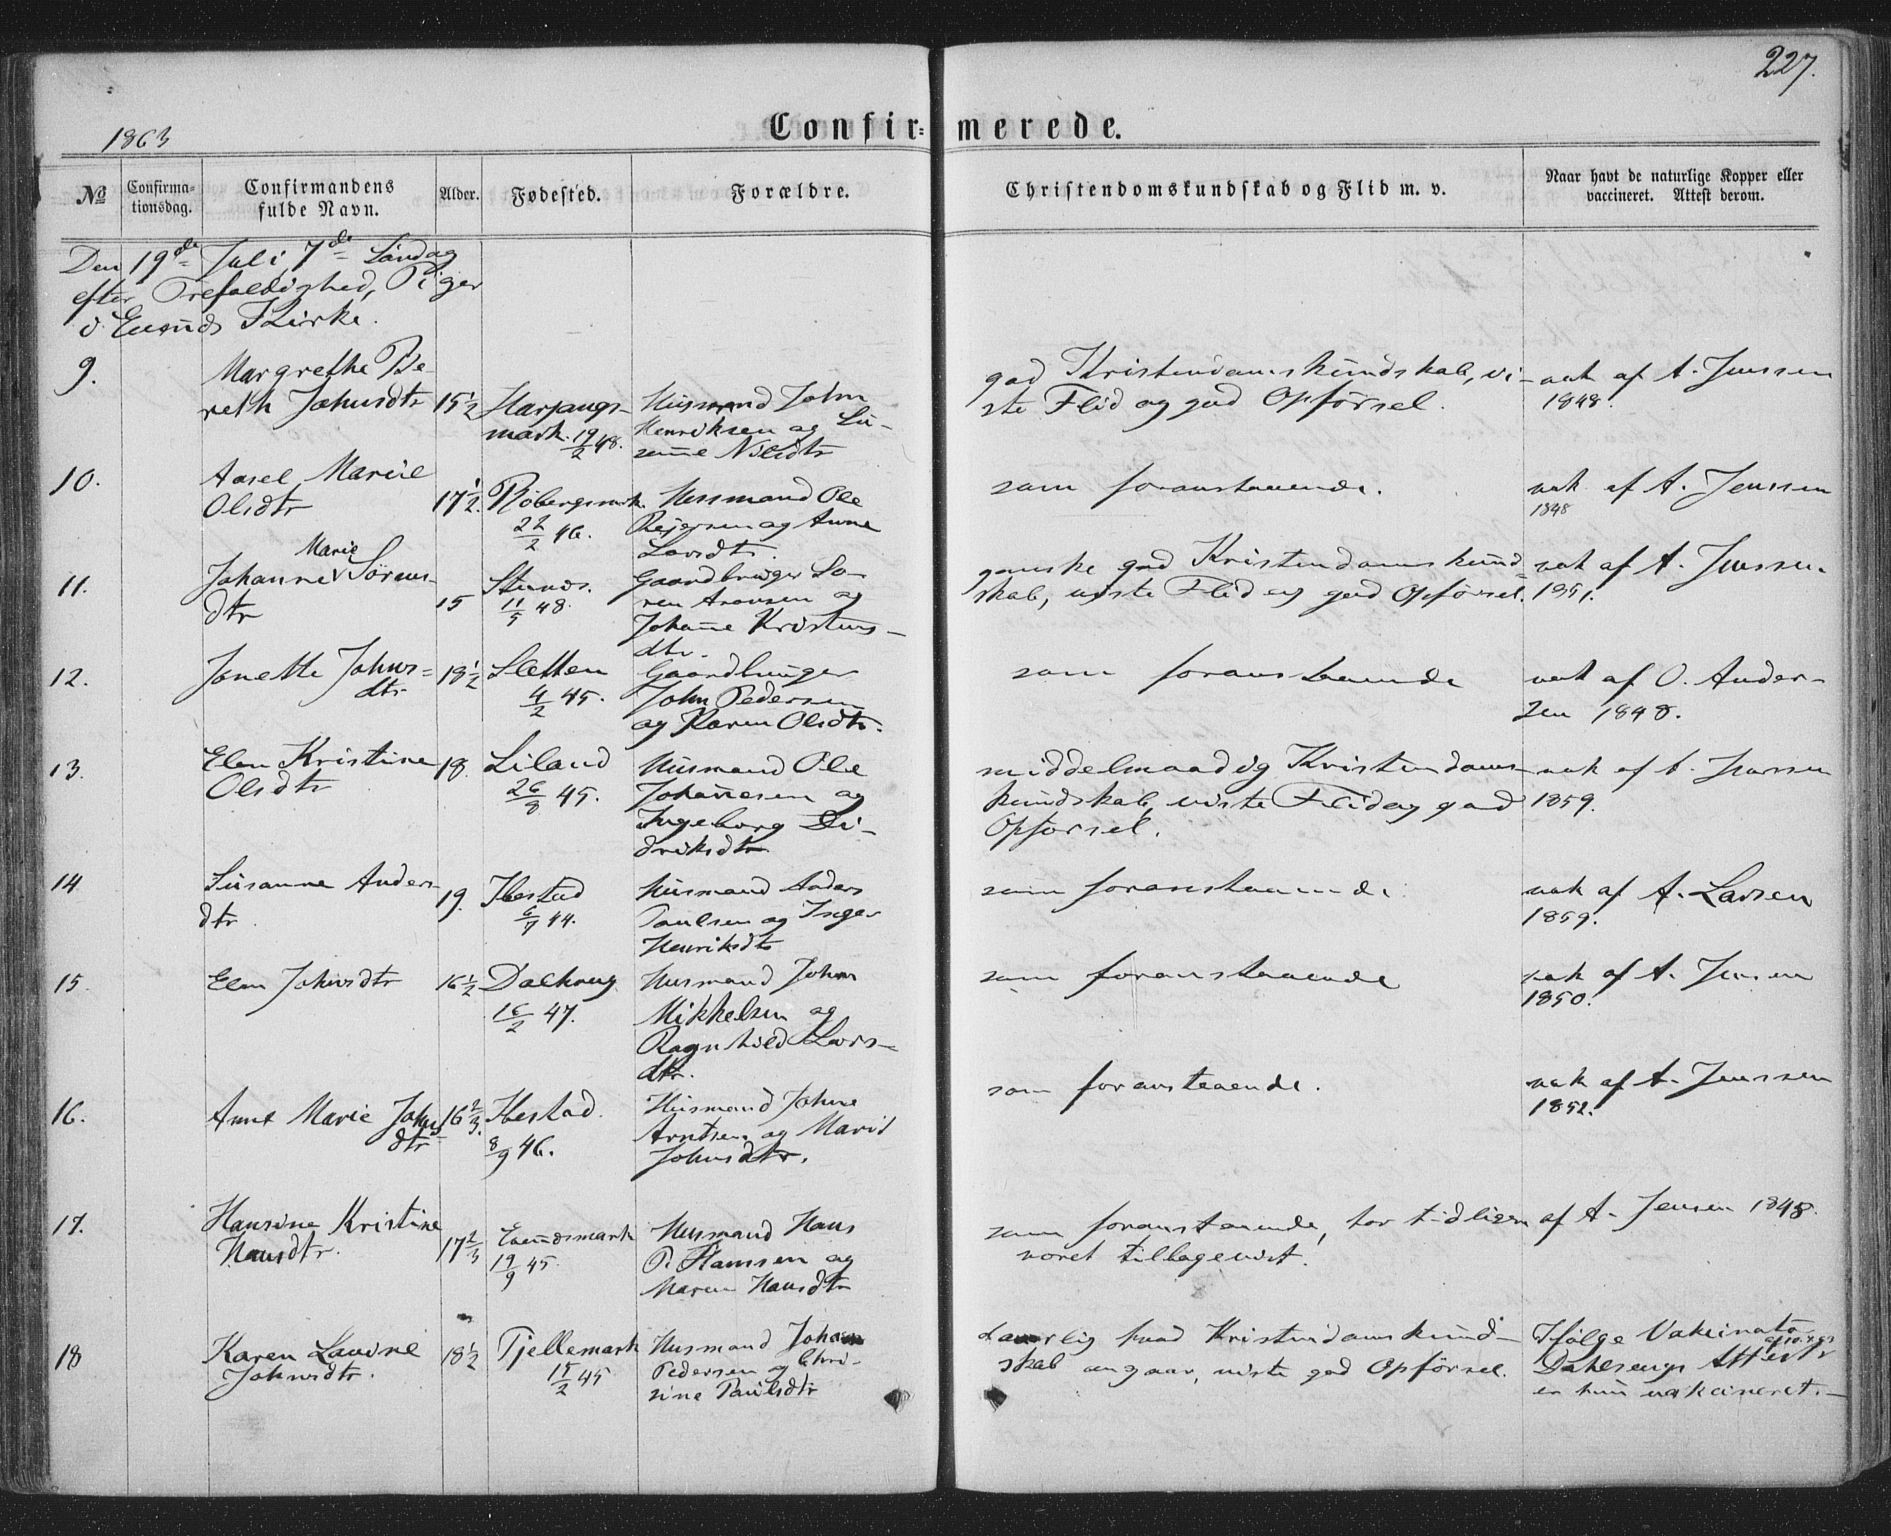 227.
1863
Confir= merede.
No
Confirma-
tionsdag.
Confirmandens
fulde Navn.
Alder.
Fødested.
Forældre.
Christendomskundskab og Flid m. v.
Naar havt de naturlige Kopper eller
vaccineret. Attest derom.
Den 19de Juli 7de Søndag
efter Trefoldighed, Piger
i Evenæs Kirke.
9.
Margrethe Be-
reth Johnsdtr
15 1/2
Harjangs-
mark. 19/2 48.
Husmand John
Henriksen og Su-
sanne Nilsdtr
god Kristendomskundskab, vi-
ste Flid og god Opførsel.
vak af A. Jenssen
1848.
10.
Aasel Marie
Olsdtr
17 1/2.
Bøbergsmark
22/2 46.
Husmand Ole
Rejersen og Anne
Larsdtr.
som foranstaaende.
vak af A. Jenssen
1848
11.
Johanne Marie Sørens-
dtr
15
Stunes.
11/5 48.
Gaardbruger Sø-
ren Aronsen og
Johanne Kristens-
dtr.
ganske god Kristendomskund-
skab, viste Flid og god Opførsel.
vak af A. Jenssen.
1851.
12.
Jonette Johns=
dtr
18 1/2
Sletten
4/2 45.
Gaardbruger
John Pedersen
og Karen Olsdtr.
som foranstaaende
vak af O. Ander-
sen 1848.
13.
Elen Kristine
Olsdtr
18.
Liland
26/8 45.
Husmand Ole
Johannesen og
Ingeborg Di-
driksdtr
middelmaadig Kristendoms-
kundskab, viste Flid og god
Opførsel.
vak af A. Jenssen
1859.
14
Susanne Anders-
dtr.
19.
Ibestad
6/7 44.
Husmand Anders
Paulsen og Inger
Henriksdtr
som foranstaaende
vak af A. Larsen
1859.
15.
Elen Johnsdtr
16 1/2
Dalhoug
16/2 47.
Husmand John
Mikkelsen og
Ragnhild Lars-
dtr.
som foranstaaende
vak af A. Jensen
1850.
16.
Anne Marie Johns
dtr
16 2/3.
Ibestad.
8/9 46.
Husmand Johne
Arntsen og Marit
Johnsdtr.
som foranstaaende.
vak af A. Jenssen
1852.
17.
Hansine Kristine
Hansdtr.
17 2/3
Evenæsmark
19/9 45.
Husmand Hans
P. Hansen og
Maren Hansdtr
som foranstaaende, har tidligere
været tilbagevist.
af A. Jensen 1848.
18
Karen Lavine
Johnsdtr.
18 1/2
Tjellemark
15/2 45
Husmand Johan
Pedersen og Chri-
sine Paulsdtr
daarlig hvad Kristendomskund-
skab angaar, viste god Opførsel.
Ifølge Vakcinatør
Dahlsengs Attest
er hun vakcineret.-